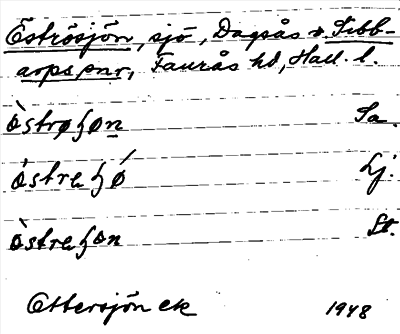 Öströsjön, sjö, Dagsås o. Sibb-
arps snr, Faurås hd, Hall. l.
òstrøʃøn Sa.
òstreʃǿ Lj.
òstreʃøn St.
Ottersjön ek 1948